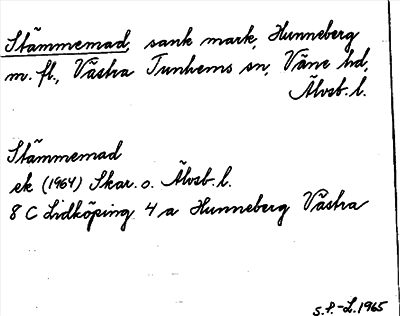 Stämmemad, sank mark, Hunneberg
m. fl., Västra Tunhems sn, Väne hd,
Älvsb. l.
Stämmemad
ek (1964) Skar. o. Älvsb. l.
8 C Lidköping 4 a Hunneberg Västra
S.F.-L. 1965